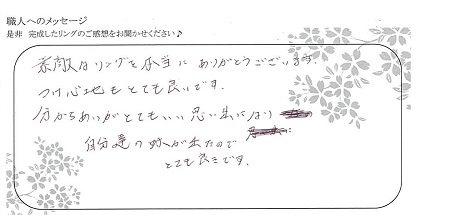 職人へのメッセージ
是非 完成したリングのご感想をお聞かせください♪
素敵なリングを本当にありがとうございます.
つけ心地もとても良いです.
分からありがとてもいい思い出になり
自分達の が出たので
とても良きです.